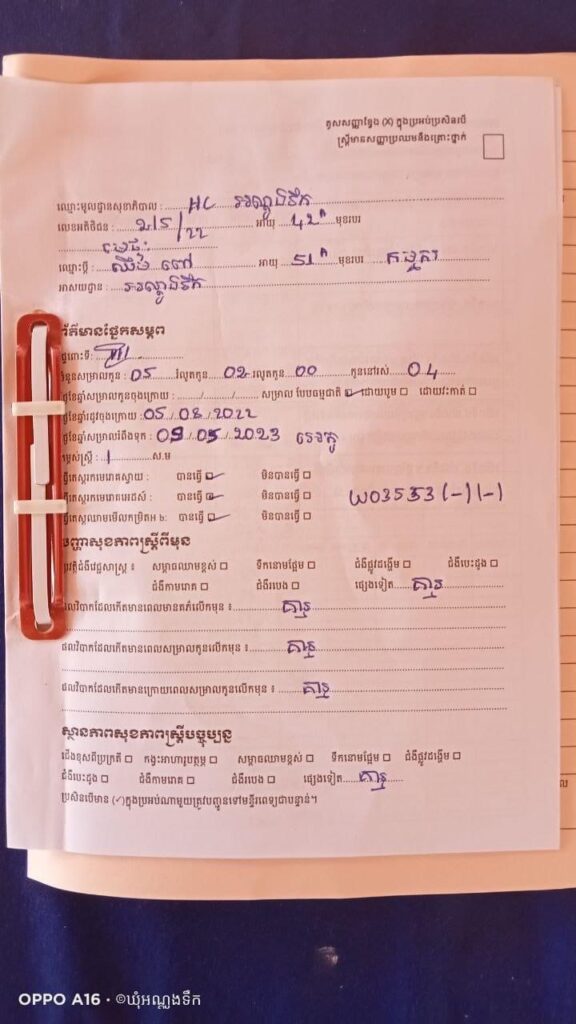 គូសសញ្ញាខ្វែង (X) ក្នុងប្រអប់ប្រសិនបើ
ស្ត្រីមានសញ្ញាប្រឈមនឹងគ្រោះថ្នាក់
ឈ្មោះមូលដ្ឋានសុខាភិបាល : HC អណ្តូងទឹក
លេខអតិថិជន : 2/5/22 អាយុ 42ឆ មុខរបរ
មេផ្ទះ
ឈ្មោះប្តី : ឈឹម ពៅ អាយុ 51ឆ មុខរបរ កម្មករ
អាសយដ្ឋាន : អណ្តូងទឹក
ព័ត៌មានផ្នែកសម្ភព
ផ្ទៃពោះទី:
ចំនួនសម្រាលកូន : 05 រំលូតកូន 02 រលូតកូន 00 កូននៅរស់ 04
ថ្ងៃខែឆ្នាំសម្រាលកូនចុងក្រោយ : ......../......../........ សម្រាល បែបធម្មជាតិ ដោយបូម ដោយវះកាត់
ថ្ងៃខែឆ្នាំរដូវចុងក្រោយ : 05/08/2022
ថ្ងៃខែឆ្នាំសម្រាលរំពឹងទុក : 09/05/2023
កម្ពស់ស្ត្រី : 1 ស.ម
ធ្វើតេស្តរកមេរោគស្វាយ : បានធ្វើ ✓ មិនបានធ្វើ
ធ្វើតេស្តរកមេរោគអេដស៍ : បានធ្វើ ✓ មិនបានធ្វើ W03553 (-) (-)
ធ្វើតេស្តឈាមមើលកម្រិតHb: បានធ្វើ ✓ មិនបានធ្វើ
បញ្ហាសុខភាពស្ត្រីពីមុន
ប្រវត្តិជំងឺវេជ្ជសាស្ត្រ ៖ សម្ពាធឈាមខ្ពស់ ទឹកនោមផ្អែម ជំងឺផ្លូវដង្ហើម ជំងឺបេះដូង
ជំងឺកាមរោគ ជំងឺរបេង ផ្សេងទៀត គ្មាន
ផលវិបាកដែលកើតមានពេលមានគភ៌លើកមុន ៖ គ្មាន
ផលវិបាកដែលកើតមានពេលសម្រាលកូនលើកមុន ៖ គ្មាន
ផលវិបាកដែលកើតមានក្រោយពេលសម្រាលកូនលើកមុន ៖ គ្មាន
ស្ថានភាពសុខភាពស្ត្រីបច្ចុប្បន្ន
ជើងខុសពីប្រក្រតី កង្វះអាហារូបត្ថម្ភ សម្ពាធឈាមខ្ពស់ ទឹកនោមផ្អែម ជំងឺផ្លូវដង្ហើម
ជំងឺបេះដូង ជំងឺកាមរោគ ជំងឺរបេង ផ្សេងទៀត គ្មាន
ប្រសិនបើមាន (✓)ក្នុងប្រអប់ណាមួយត្រូវបញ្ជូនទៅមន្ទីរពេទ្យជាបន្ទាន់។
OPPO A16 · ©ឃុំអណ្តូងទឹក